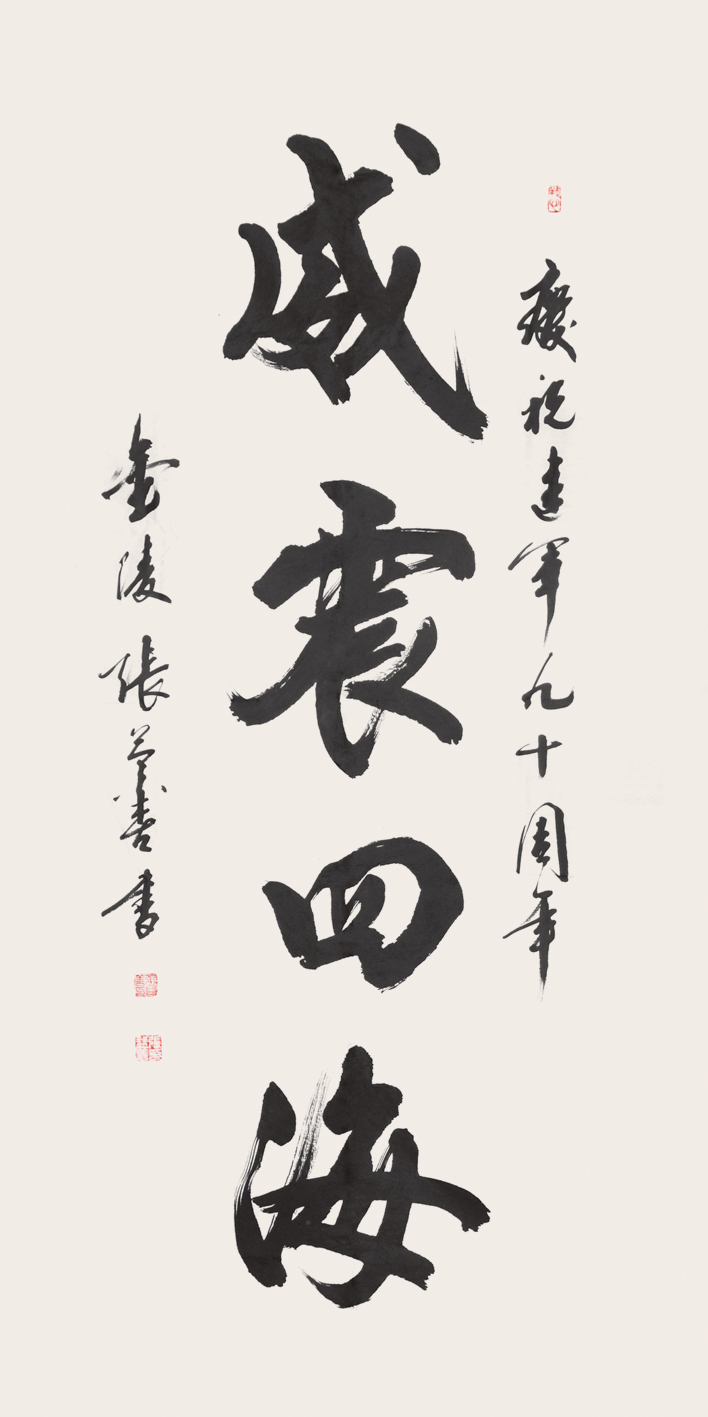 慶祝建軍九十周年
威震四海
金陵張益善書